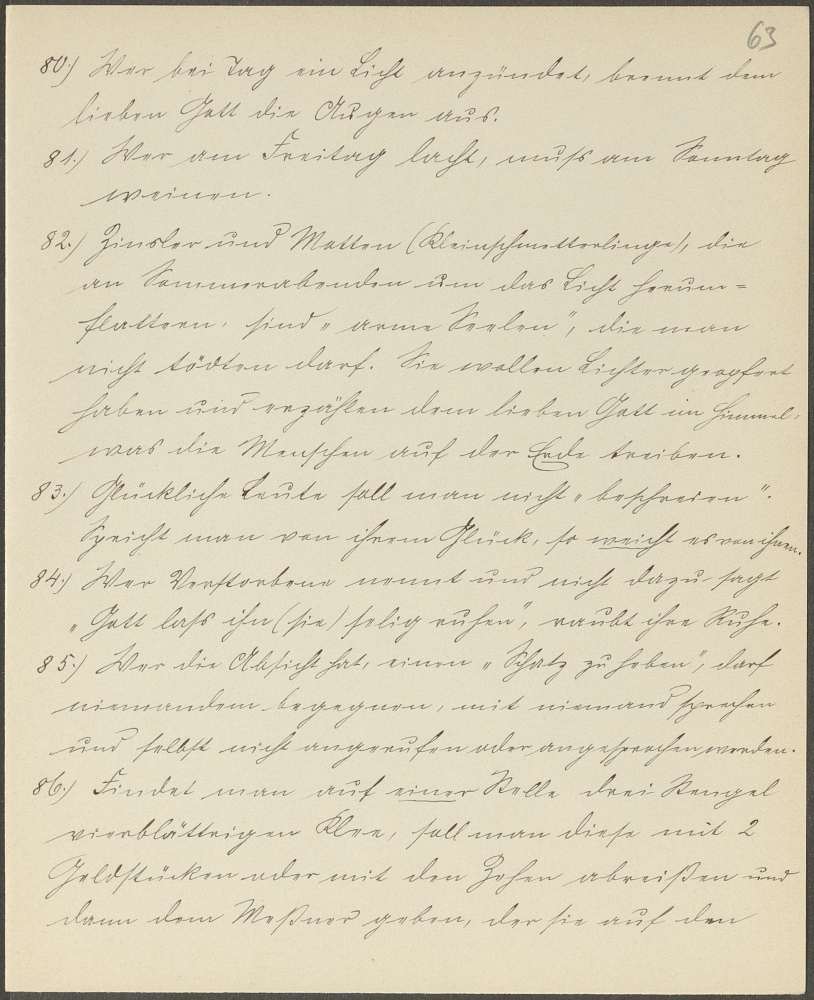 63
80.) Wer bei Tag ein Licht anzündet, brennt dem
lieben Gott die Augen aus.
81.) Wer am Freitag lacht, muſs am Sonntag
weinen.
82.) Zinsler und Motten (Kleinschmetterlinge), die
an Sommerabenden um das Licht herum=
flattern, sind „arme Seelen", die man
nicht tödten darf. Sie wollen Lichter geopfert
haben und erzählen dem lieben Gott im Himmel,
was die Menschen auf der Erde treiben.
83.) Glückliche Leute soll man nicht „beschreien".
Spricht man von ihrem Glück, so weicht es von ihnen.
84.) Wer Verstorbene nennt und nicht dazu sagt
„Gott laſs ihn (sie) selig ruhen", raubt ihre Ruhe.
85.) Wer die Absicht hat, einen „Schatz zu heben", darf
niemandem begegnen, mit niemand sprechen
und selbst nicht angerufen oder angesprochen werden.
86.) Findet man auf einer Stelle drei Stengel
vierblättrigen Klee, soll man diese mit 2
Geldstücken oder mit den Zehen abreißen und
dann dem Meßner geben, der sie auf den